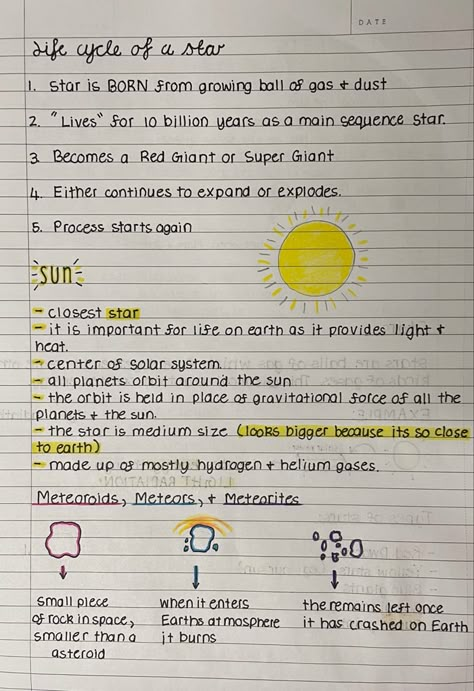 DATE
Life cycle of a star
1. Star is BORN from growing ball of gas + dust
2. "Lives" for 10 billion years as a main sequence star.
3. Becomes a Red Giant or Super Giant
4. Either continues to expand or explodes.
5. Process starts again
SUN
- closest star
- it is important for life on earth as it provides light +
heat.
- center of solar system.
- all planets orbit around the sun
- the orbit is held in place of gravitational force of all the
planets + the sun.
- the star is medium size (looks bigger because its so close
to earth)
- made up of mostly hydrogen + helium gases.
Meteoroids, Meteors, + Meteorites
small piece
of rock in space,
smaller than a
asteroid
when it enters
Earths atmosphere
it burns
the remains left once
it has crashed on Earth